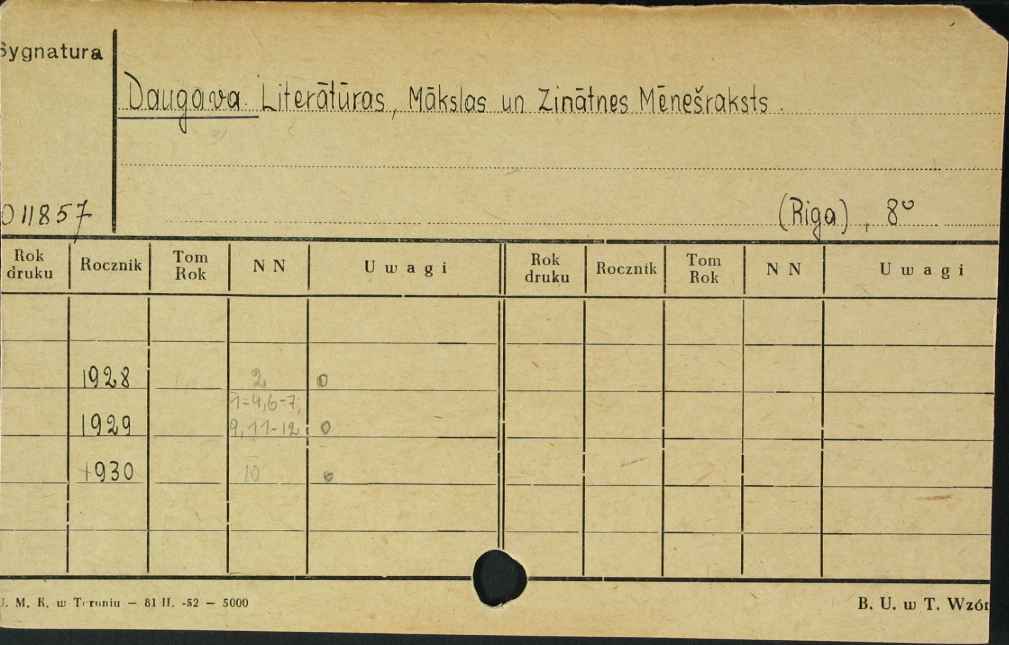 Sygnatura
Daugava. Literātūras, Mākslas un Zinātnes Mēnešraksts.
011857
(Riga), 8°
Rok druku Rocznik Tom Rok N N U w a g i Rok druku Rocznik Tom Rok N N U w a g i
1928 2 0
1-4,6-7,
1929 9,11-12 0
1930 10 0
U. M. K. w Toruniu — 81 II. -52 — 5000
B. U. w T. Wzór